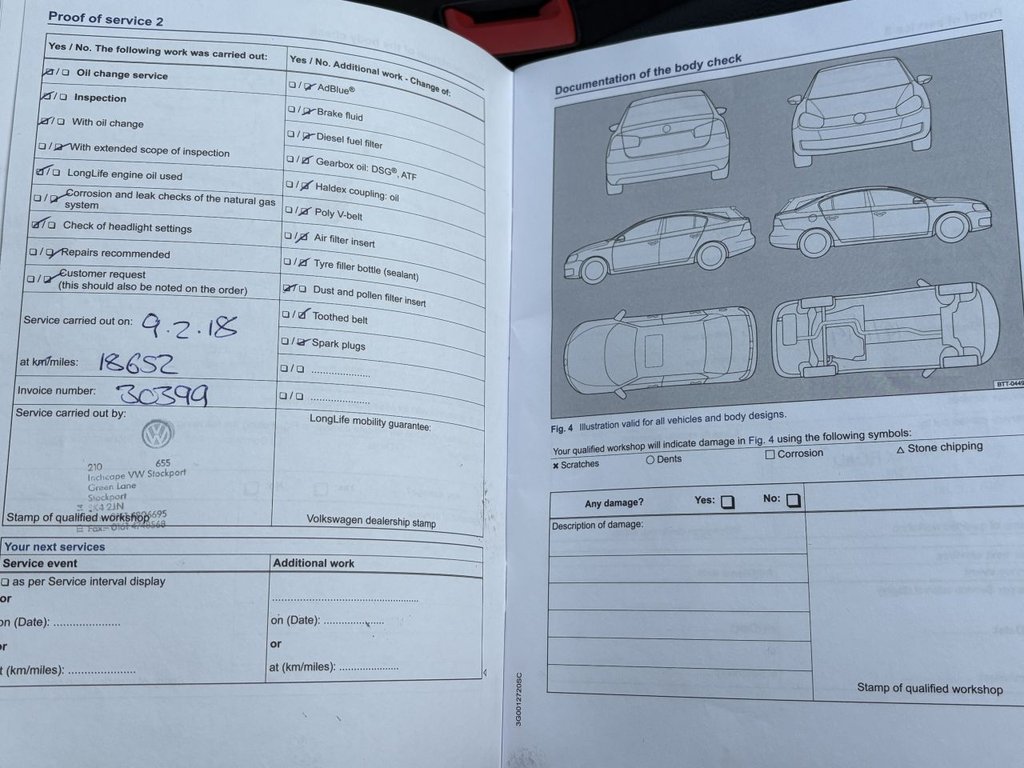 Proof of service 2
Yes / No. The following work was carried out:
/ Oil change service
/ Inspection
/ With oil change
/ With extended scope of inspection
/ LongLife engine oil used
/ Corrosion and leak checks of the natural gas
system
/ Check of headlight settings
/ Repairs recommended
/ Customer request
(this should also be noted on the order)
Service carried out on: 9.2.18
at km/miles: 18652
Invoice number: 30399
Service carried out by:
210 655
Inchcape VW Stockport
Green Lane
Stockport
SK4 2JN
Stamp of qualified workshop
Yes / No. Additional work - Change of:
/ AdBlue®
/ Brake fluid
/ Diesel fuel filter
/ Gearbox oil: DSG®, ATF
/ Haldex coupling: oil
/ Poly V-belt
/ Air filter insert
/ Tyre filler bottle (sealant)
/ Dust and pollen filter insert
/ Toothed belt
/ Spark plugs
/ ......................
/ ......................
LongLife mobility guarantee:
Volkswagen dealership stamp
Your next services
Service event
as per Service interval display
or
on (Date): ....................
or
at (km/miles): ....................
Additional work
on (Date): ..................
or
at (km/miles): ..................
3G0012720SC
Documentation of the body check
BTT-0449
Fig. 4 Illustration valid for all vehicles and body designs.
Your qualified workshop will indicate damage in Fig. 4 using the following symbols:
× Scratches ○ Dents □ Corrosion △ Stone chipping
Any damage? Yes: No:
Description of damage:
Stamp of qualified workshop